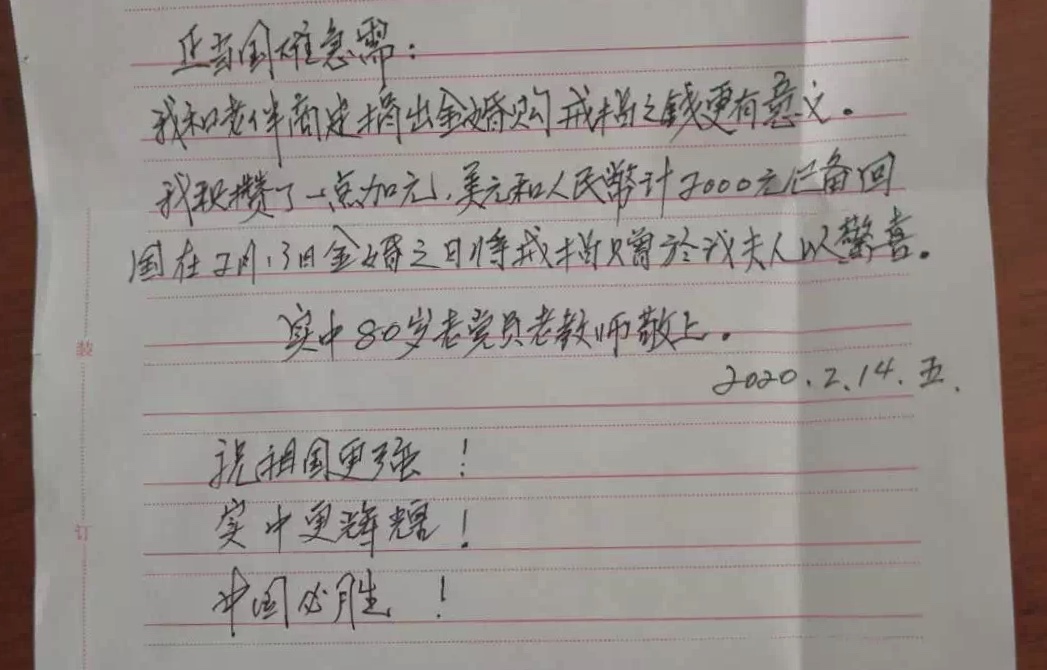 正当国难急需：
我和老伴商定捐出金婚购戒指之钱更有意义。
我积攒了一点加元，美元和人民幣计2000元已备回
国在2月13日金婚之日将戒指赠於我夫人以驚喜。
实中80岁老党员老教师敬上。
2020.2.14.五.
祝祖国更强！
实中更辉煌！
中国必胜！
装
订